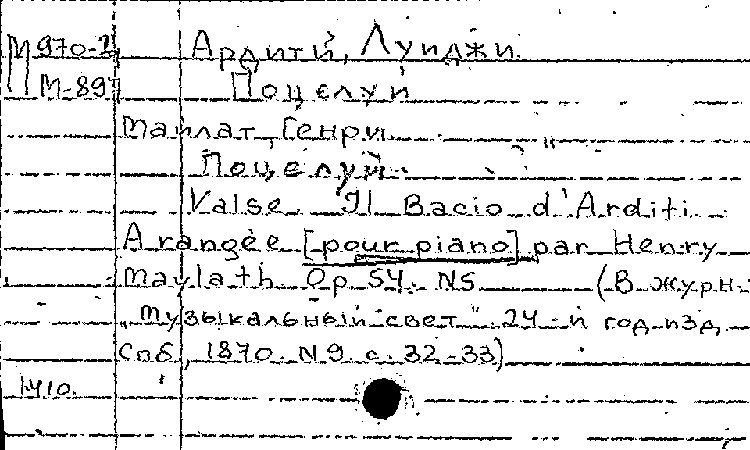 М 970-2 Ардити, Луиджи.
М-897 Поцелуй
Маилат, Генри.
Поцелуй.
Valse. Il Bacio d'Arditi.
Arangée [pour piano] par Henry
Maylath. Op 54. N5 (В журн.
"Музыкальный свет". 24-й год изд.
Спб, 1870. N 9. с. 32-33)
1410.